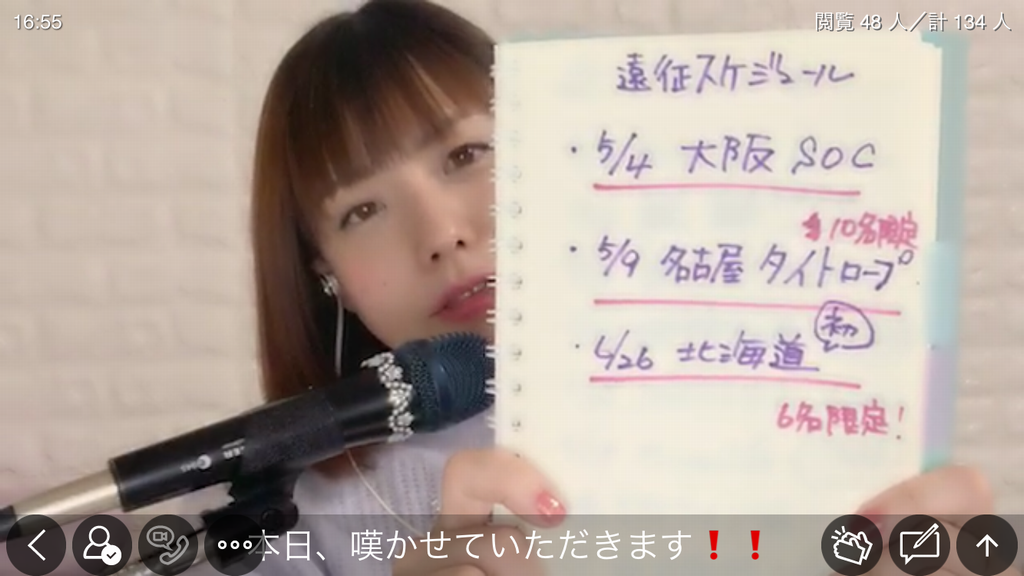 16:55
閲覧 48 人／計 134 人
遠征スケジュール
・5/4 大阪 SOC
10名限定
・5/9 名古屋 タイトロープ
初
・6/26 北海道
6名限定!
本日、嘆かせていただきます❗❗